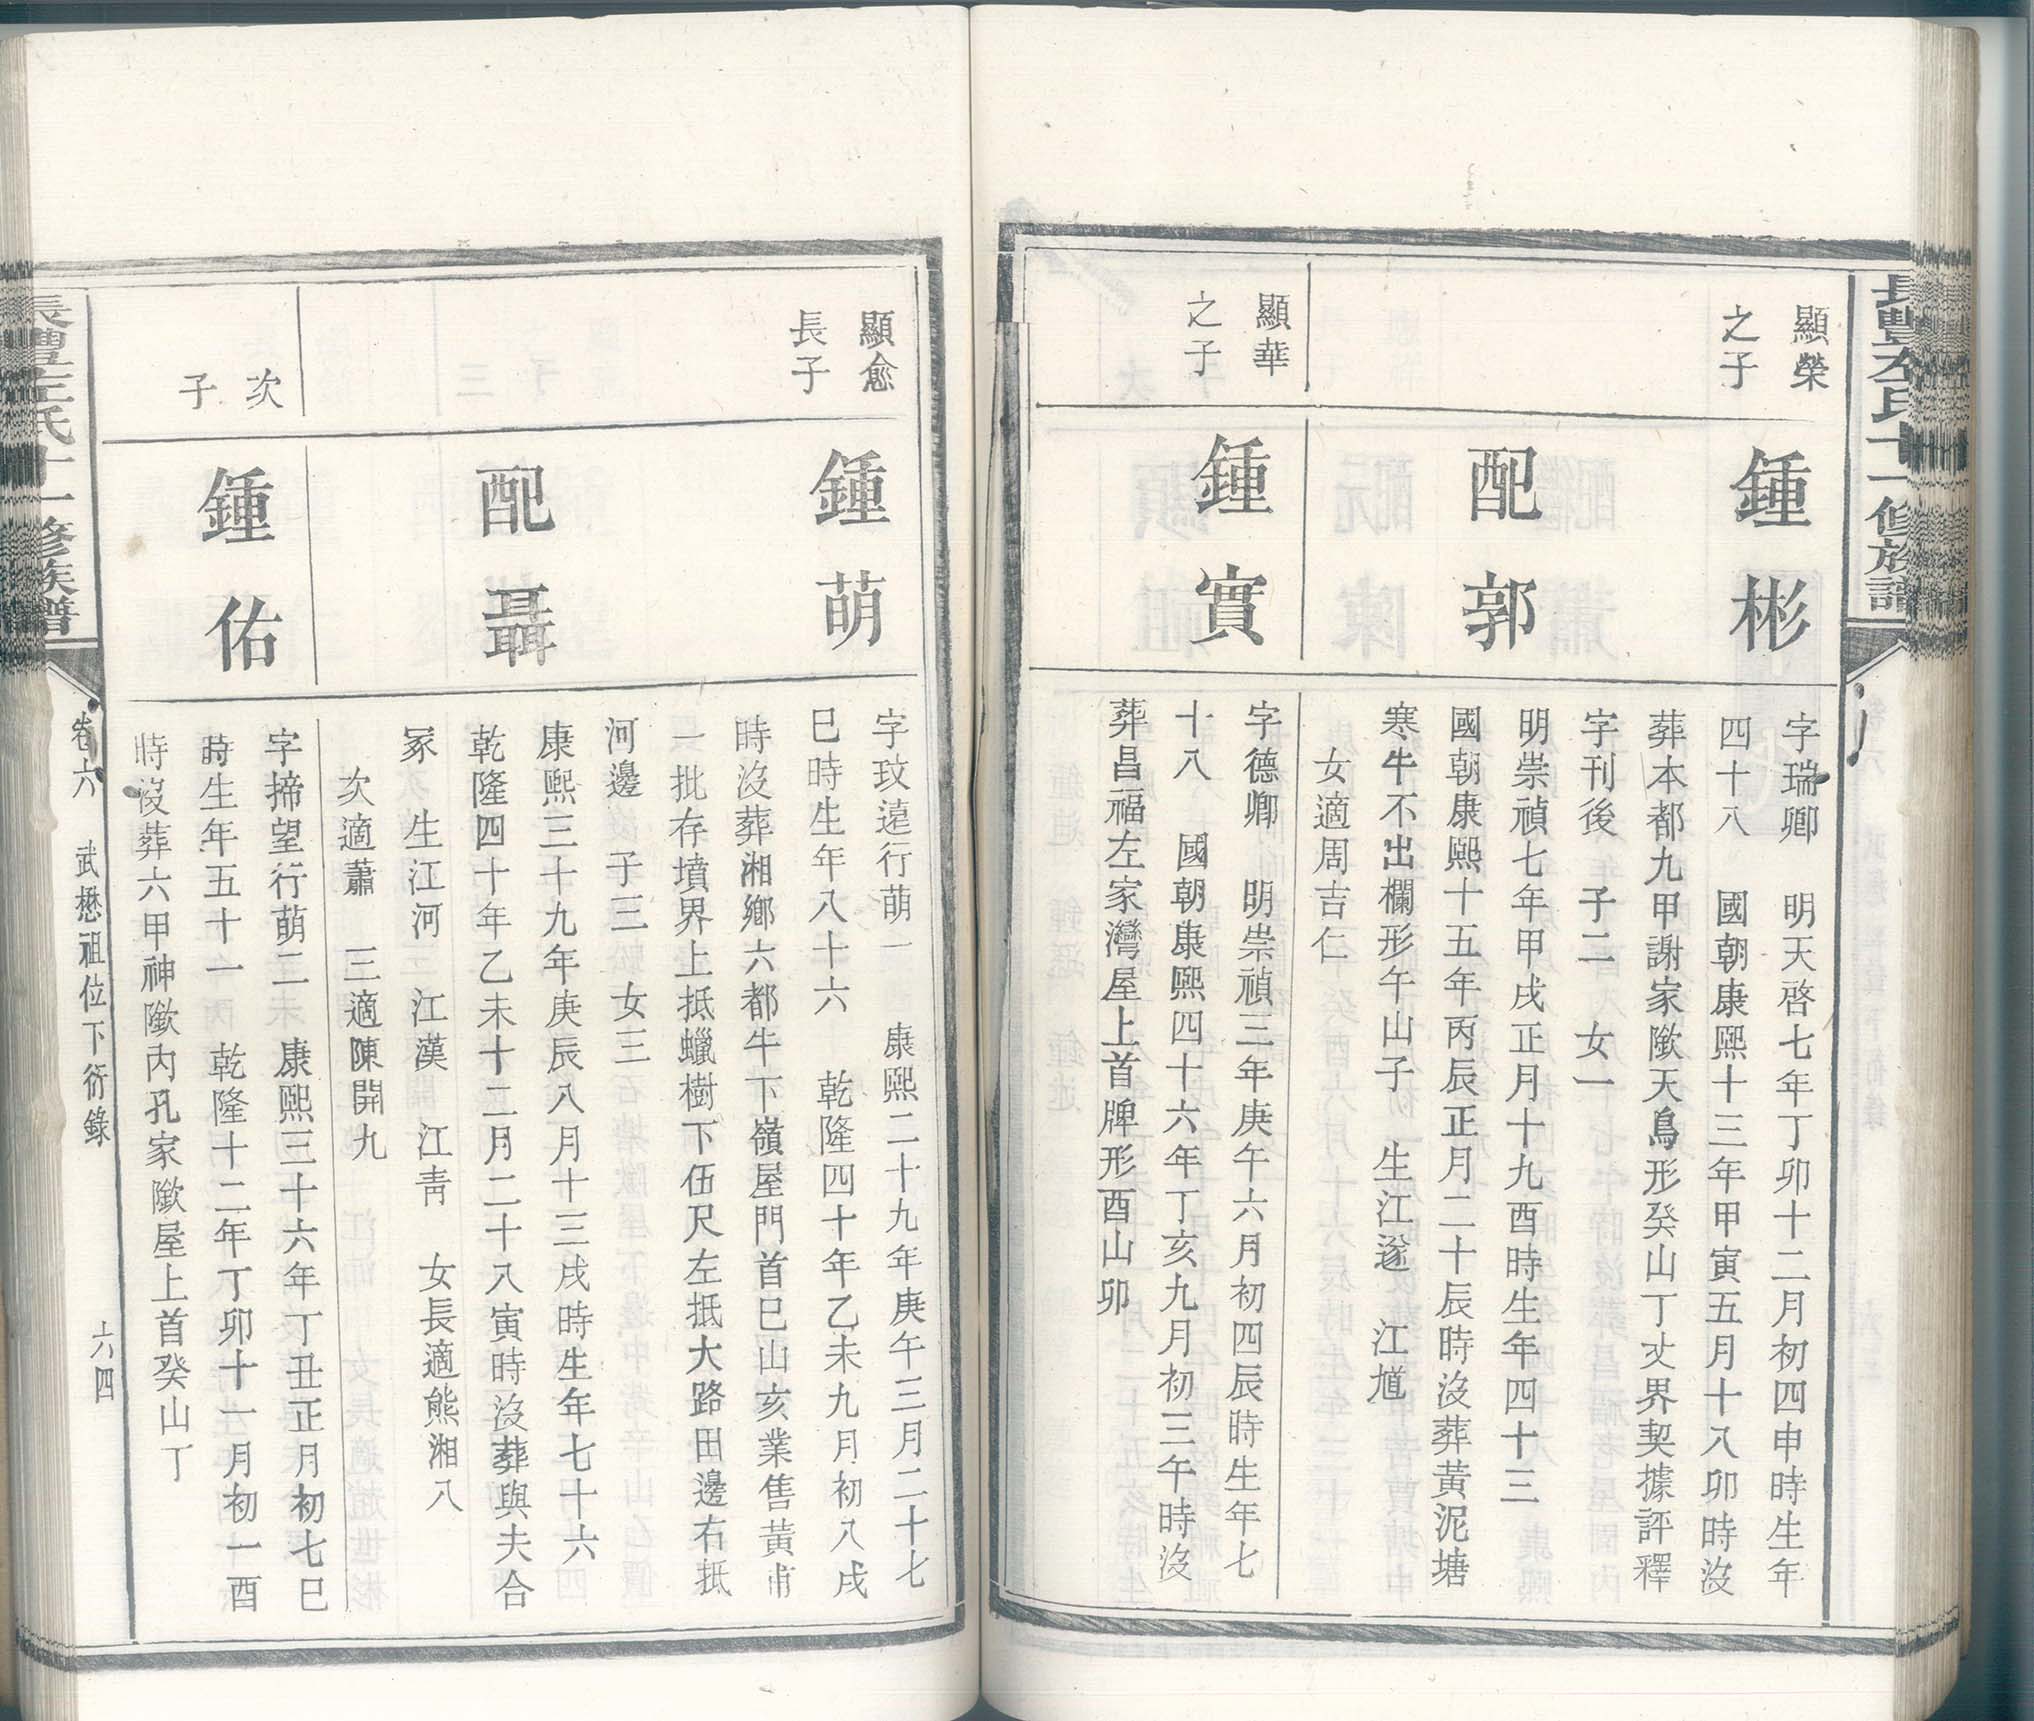 長豐左氏十一修族譜
顯榮
之子
鍾彬
字瑞卿　明天啓七年丁卯十二月初四申時生年
四十八　國朝康熙十三年甲寅五月十八卯時沒
葬本都九甲謝家隞天鳥形癸山丁丈界契據評釋
字刊後　子二　女一
配郭
明崇禎七年甲戌正月十九酉時生年四十三
國朝康熙十五年丙辰正月二十辰時沒葬黃泥塘
寒牛不出欄形午山子　生江遂　江馗
女適周吉仁
顯華
之子
鍾實
字德卿　明崇禎三年庚午六月初四辰時生年七
十八　國朝康熙四十六年丁亥九月初三午時沒
葬昌福左家灣屋上首牌形酉山卯
顯愈
長子
鍾萌
字玟遠行萌一　康熙二十九年庚午三月二十七
巳時生年八十六　乾隆四十年乙未九月初八戌
時沒葬湘鄉六都牛下嶺屋門首巳山亥業售黃甫
一批存墳界上抵蠟樹下伍尺左抵大路田邊右抵
河邊　子三　女三
配聶
康熙三十九年庚辰八月十三戌時生年七十六
乾隆四十年乙未十二月二十八寅時沒葬與夫合
冢　生江河　江漢　江青　女長適熊湘八
次適蕭　三適陳開九
次
子
鍾佑
字揥望行萌二　康熙三十六年丁丑正月初七巳
時生年五十一　乾隆十二年丁卯十一月初一酉
時沒葬六甲神隞內孔家隞屋上首癸山丁
長豐左氏十一修族譜
卷六　武懋祖位下衍錄　六四